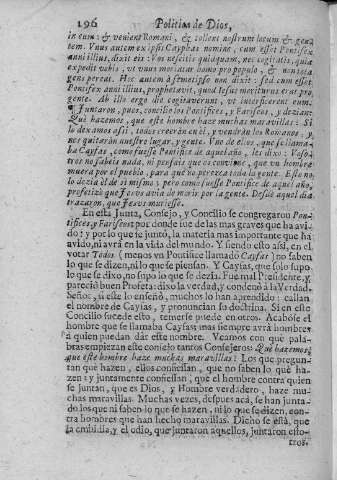 196 Politica de Dios,
in eum: & venient Romani, & tollent nostrum locum & gen
tem. Vnus autem ex ipsis Cayphas nomine, cum esset Pontifex
anni illius, dixit eis: Vos nescitis quidquam, nec cogitatis, quia
expedit vobis, vt vnus moriatur homo pro populo, & non tota
gens pereat. Hoc autem à semetipso non dixit: sed cum esset
Pontifex anni illius, prophetavit, quod Iesus moriturus erat pro
gente. Ab illo ergo die cogitaverunt, vt interficerent eum.
Juntaron, pues, concilio los Pontifices, y Fariseos, y dezian:
Què hazemos, que este hombre haze muchas maravillas: Si
lo dexamos assi, todos creeràn en èl, y vendràn los Romanos, y
nos quitaràn nuestro lugar, y gente. Vno de ellos, que se llama-
ba Cayfas, como fuesse Pontifice de aquel año, les dixo: Voso-
tros no sabeis nada, ni pensais que os conviene, que vn hombre
muera por el pueblo, para què no perezca toda la gente. Esto no
lo dezia èl de si mismo; pero como fuesse Pontifice de aquel año,
profetizò que Jesvs avia de morir por la gente. Desde aquel dia
trazaron, que Jesvs muriesse.
En esta Junta, Consejo, y Concilio se congregarou Pon-
tifices, y Fariseos: por donde fue de las mas graves que ha avi-
do: y por lo que se juntò, la materia mas importante que ha
avido, ni avrà en la vida del mundo. Y siendo esto assi, en el
votar Todos (menos vn Pontifice llamado Cayfas) no saben
lo que se dizen, ni lo que se piensan. Y Cayfas, que solo supo
lo que se dixo, no supo lo que se dezia. Fue mal Presidente, y
pareciò buen Profeta: dixo la verdad, y condenò à la Verdad.
Señor, si este lo enseñò, muchos lo han aprendido: callan
el nombre de Cayfas, y pronuncian su doctrina. Si en este
Concilio sucede esto, temerse puede en otros. Acabòse el
hombre que se llamaba Cayfas; mas siempre avrà hombres
à quien puedan dàr este nombre. Veamos con que pala-
bras empiezan este consejo tantos Consejeros: Què hazemos,
que este hombre haze muchas maravillas? Los que pregun-
tan què hazen, ellos confiessan, que no saben lo què ha-
zen: y juntamente confiessan, que el hombre contra quien
se juntan, que es Dios, y Hombre verdadero, haze mu-
chas maravillas. Muchas vezes, despues acà, se han junta-
do los que ni saben lo que se hazen, ni lo que se dizen, con-
tra hombres que han hecho maravillas. Dicho se està, que
la embidia, y el odio, que juntaron aquellos, juntaron esto-
tros.